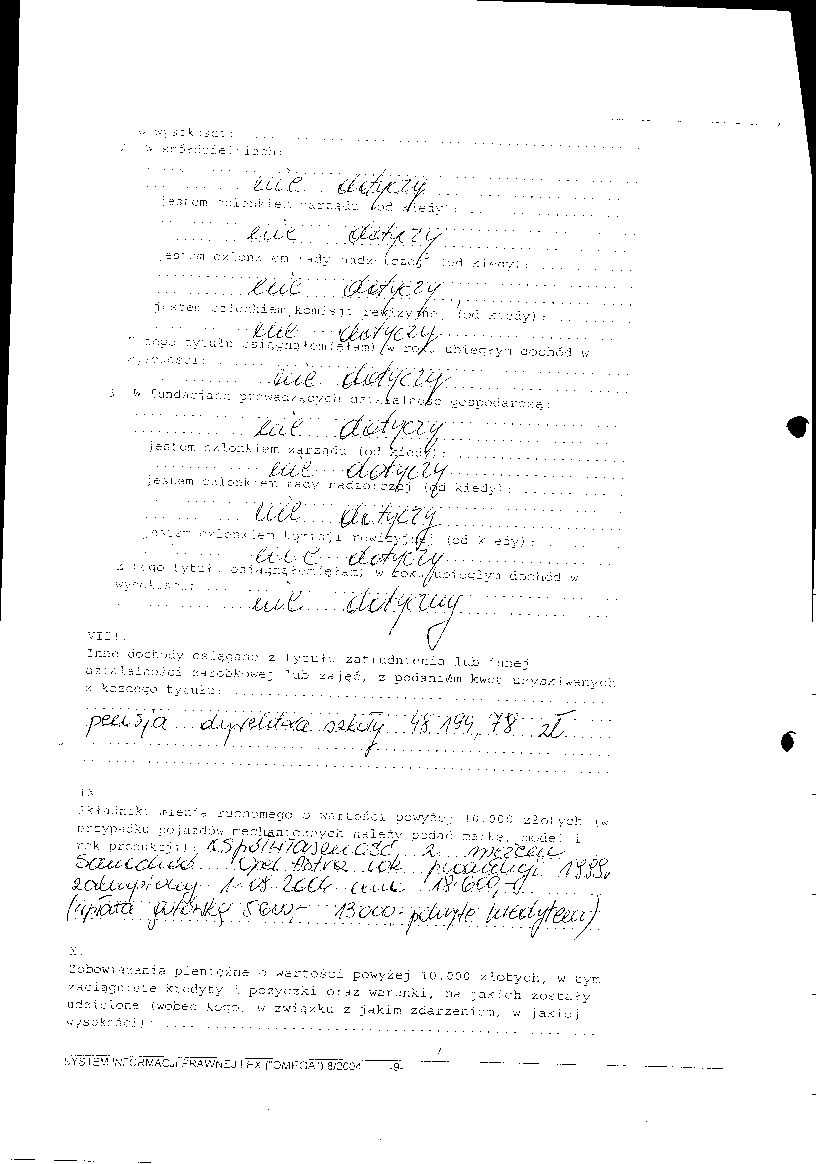 w wysokości:
2. W spółdzielniach:
nie dotyczy
jestem członkiem zarządu (od kiedy):
nie dotyczy
jestem członkiem rady nadzorczej (od kiedy):
nie dotyczy
jestem członkiem komisji rewizyjnej (od kiedy):
nie dotyczy
Z tego tytułu osiągnąłem(ęłam) w roku ubiegłym dochód w
wysokości:
nie dotyczy
3. W fundacjach prowadzących działalność gospodarczą:
nie dotyczy
jestem członkiem zarządu (od kiedy):
nie dotyczy
jestem członkiem rady nadzorczej (od kiedy):
nie dotyczy
jestem członkiem komisji rewizyjnej (od kiedy):
nie dotyczy
Z tego tytułu osiągnąłem(ęłam) w roku ubiegłym dochód w
wysokości:
nie dotyczy
VIII.
Inne dochody osiągane z tytułu zatrudnienia lub innej
działalności zarobkowej lub zajęć, z podaniem kwot uzyskiwanych
z każdego tytułu:
pensja dyrektora szkoły 48 194,78 zł
IX.
Składniki mienia ruchomego o wartości powyżej 10.000 złotych (w
przypadku pojazdów mechanicznych należy podać markę, model i
rok produkcji): współwłasność z mężem
samochód Opel Astra rok produkcji 1999r
zakupiony 08.2004 18 600,-
(wpłata gotówką 5600,- 13000- pokryte kredytem)
X.
Zobowiązania pieniężne o wartości powyżej 10.000 złotych, w tym
zaciągnięte kredyty i pożyczki oraz warunki, na jakich zostały
udzielone (wobec kogo, w związku z jakim zdarzeniem, w jakiej
wysokości):
SYSTEM INFORMACJI PRAWNEJ LEX ("OMEGA") 8/2004 -9-